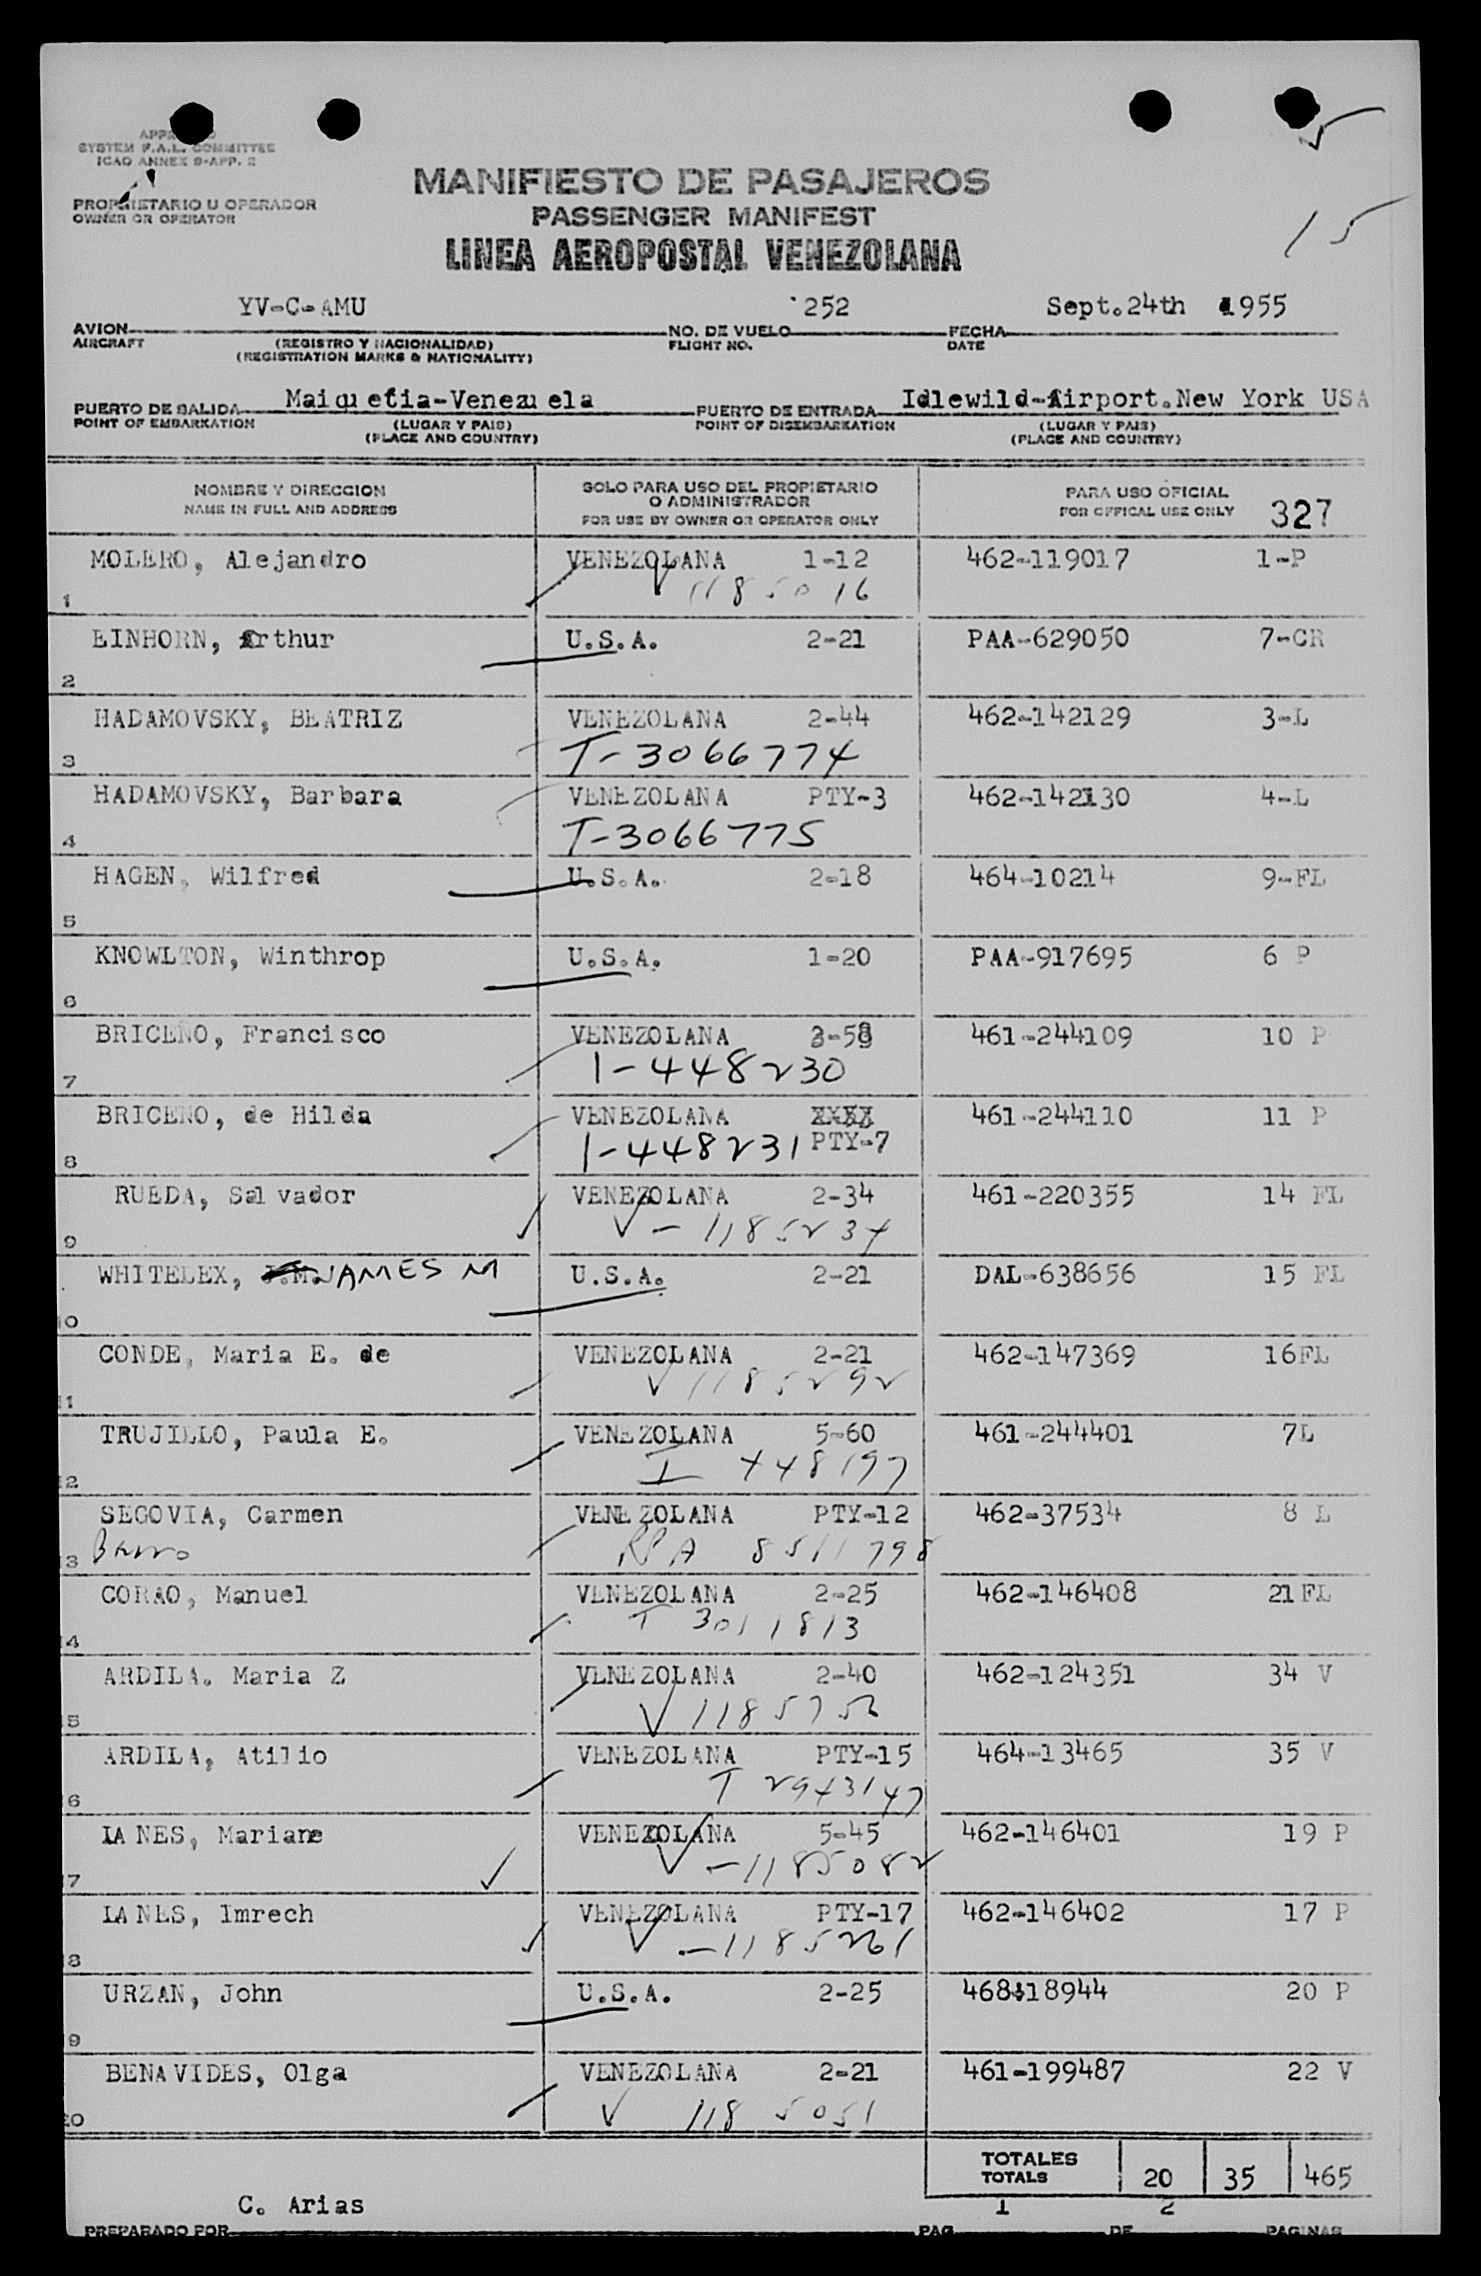 SYSTEM F.A.L. COMMITTEE
ICAO ANNEX 9-APP. 2
PROPRIETARIO U OPERADOR
OWNER OR OPERATOR
MANIFIESTO DE PASAJEROS
PASSENGER MANIFEST
LINEA AEROPOSTAL VENEZOLANA
15
YV-C-AMU 252 Sept.24th 1955
AVION NO. DE VUELO FECHA
AIRCRAFT (REGISTRO Y NACIONALIDAD) FLIGHT NO. DATE
(REGISTRATION MARKS & NATIONALITY)
Maiquetia-Venezuela Idlewild-Airport.New York USA
PUERTO DE SALIDA PUERTO DE ENTRADA
POINT OF EMBARKATION (LUGAR Y PAIS) POINT OF DISEMBARKATION (LUGAR Y PAIS)
(PLACE AND COUNTRY) (PLACE AND COUNTRY)
NOMBRE Y DIRECCION SOLO PARA USO DEL PROPIETARIO PARA USO OFICIAL
NAME IN FULL AND ADDRESS O ADMINISTRADOR FOR OFFICAL USE ONLY 327
FOR USE BY OWNER OR OPERATOR ONLY
MOLERO, Alejandro VENEZOLANA 1-12 462-119017 1-P
1 V 1185016
EINHORN, Arthur U.S.A. 2-21 PAA-629050 7-CR
2
HADAMOVSKY, BEATRIZ VENEZOLANA 2-44 462-142129 3-L
3 T-3066774
HADAMOVSKY, Barbara VENEZOLANA PTY-3 462-142130 4-L
4 T-3066775
HAGEN, Wilfred U.S.A. 2-18 464-10214 9-FL
5
KNOWLTON, Winthrop U.S.A. 1-20 PAA-917695 6 P
6
BRICEÑO, Francisco VENEZOLANA 3-58 461-244109 10 P
7 1-448230
BRICEÑO, de Hilda VENEZOLANA 461-244110 11 P
8 1-448231 PTY-7
RUEDA, Salvador VENEZOLANA 2-34 461-220355 14 FL
9 V-1185234
WHITELEX, J.M. JAMES M U.S.A. 2-21 DAL-638656 15 FL
10
CONDE, Maria E. de VENEZOLANA 2-21 462-147369 16FL
11 V 1185292
TRUJILLO, Paula E. VENEZOLANA 5-60 461-244401 7L
12 I 448197
SEGOVIA, Carmen VENEZOLANA PTY-12 462-37534 8 L
13 8511798
CORAO, Manuel VENEZOLANA 2-25 462-146408 21FL
14 T 3011813
ARDILA. Maria Z VENEZOLANA 2-40 462-124351 34 V
15 V
ARDILA, Atilio VENEZOLANA PTY-15 464-13465 35 V
16 T 2943147
IANES, Mariane VENEZOLANA 5-45 462-146401 19 P
17 V-1185082
IANES, Imrech VENEZOLANA PTY-17 462-146402 17 P
18 V-1185261
URZAN, John U.S.A. 2-25 468-18944 20 P
19
BENAVIDES, Olga VENEZOLANA 2-21 461-199487 22 V
20 V 1185051
TOTALES
TOTALS 20 35 465
C. Arias 1 2
PREPARADO POR PAG. DE PAGINAS